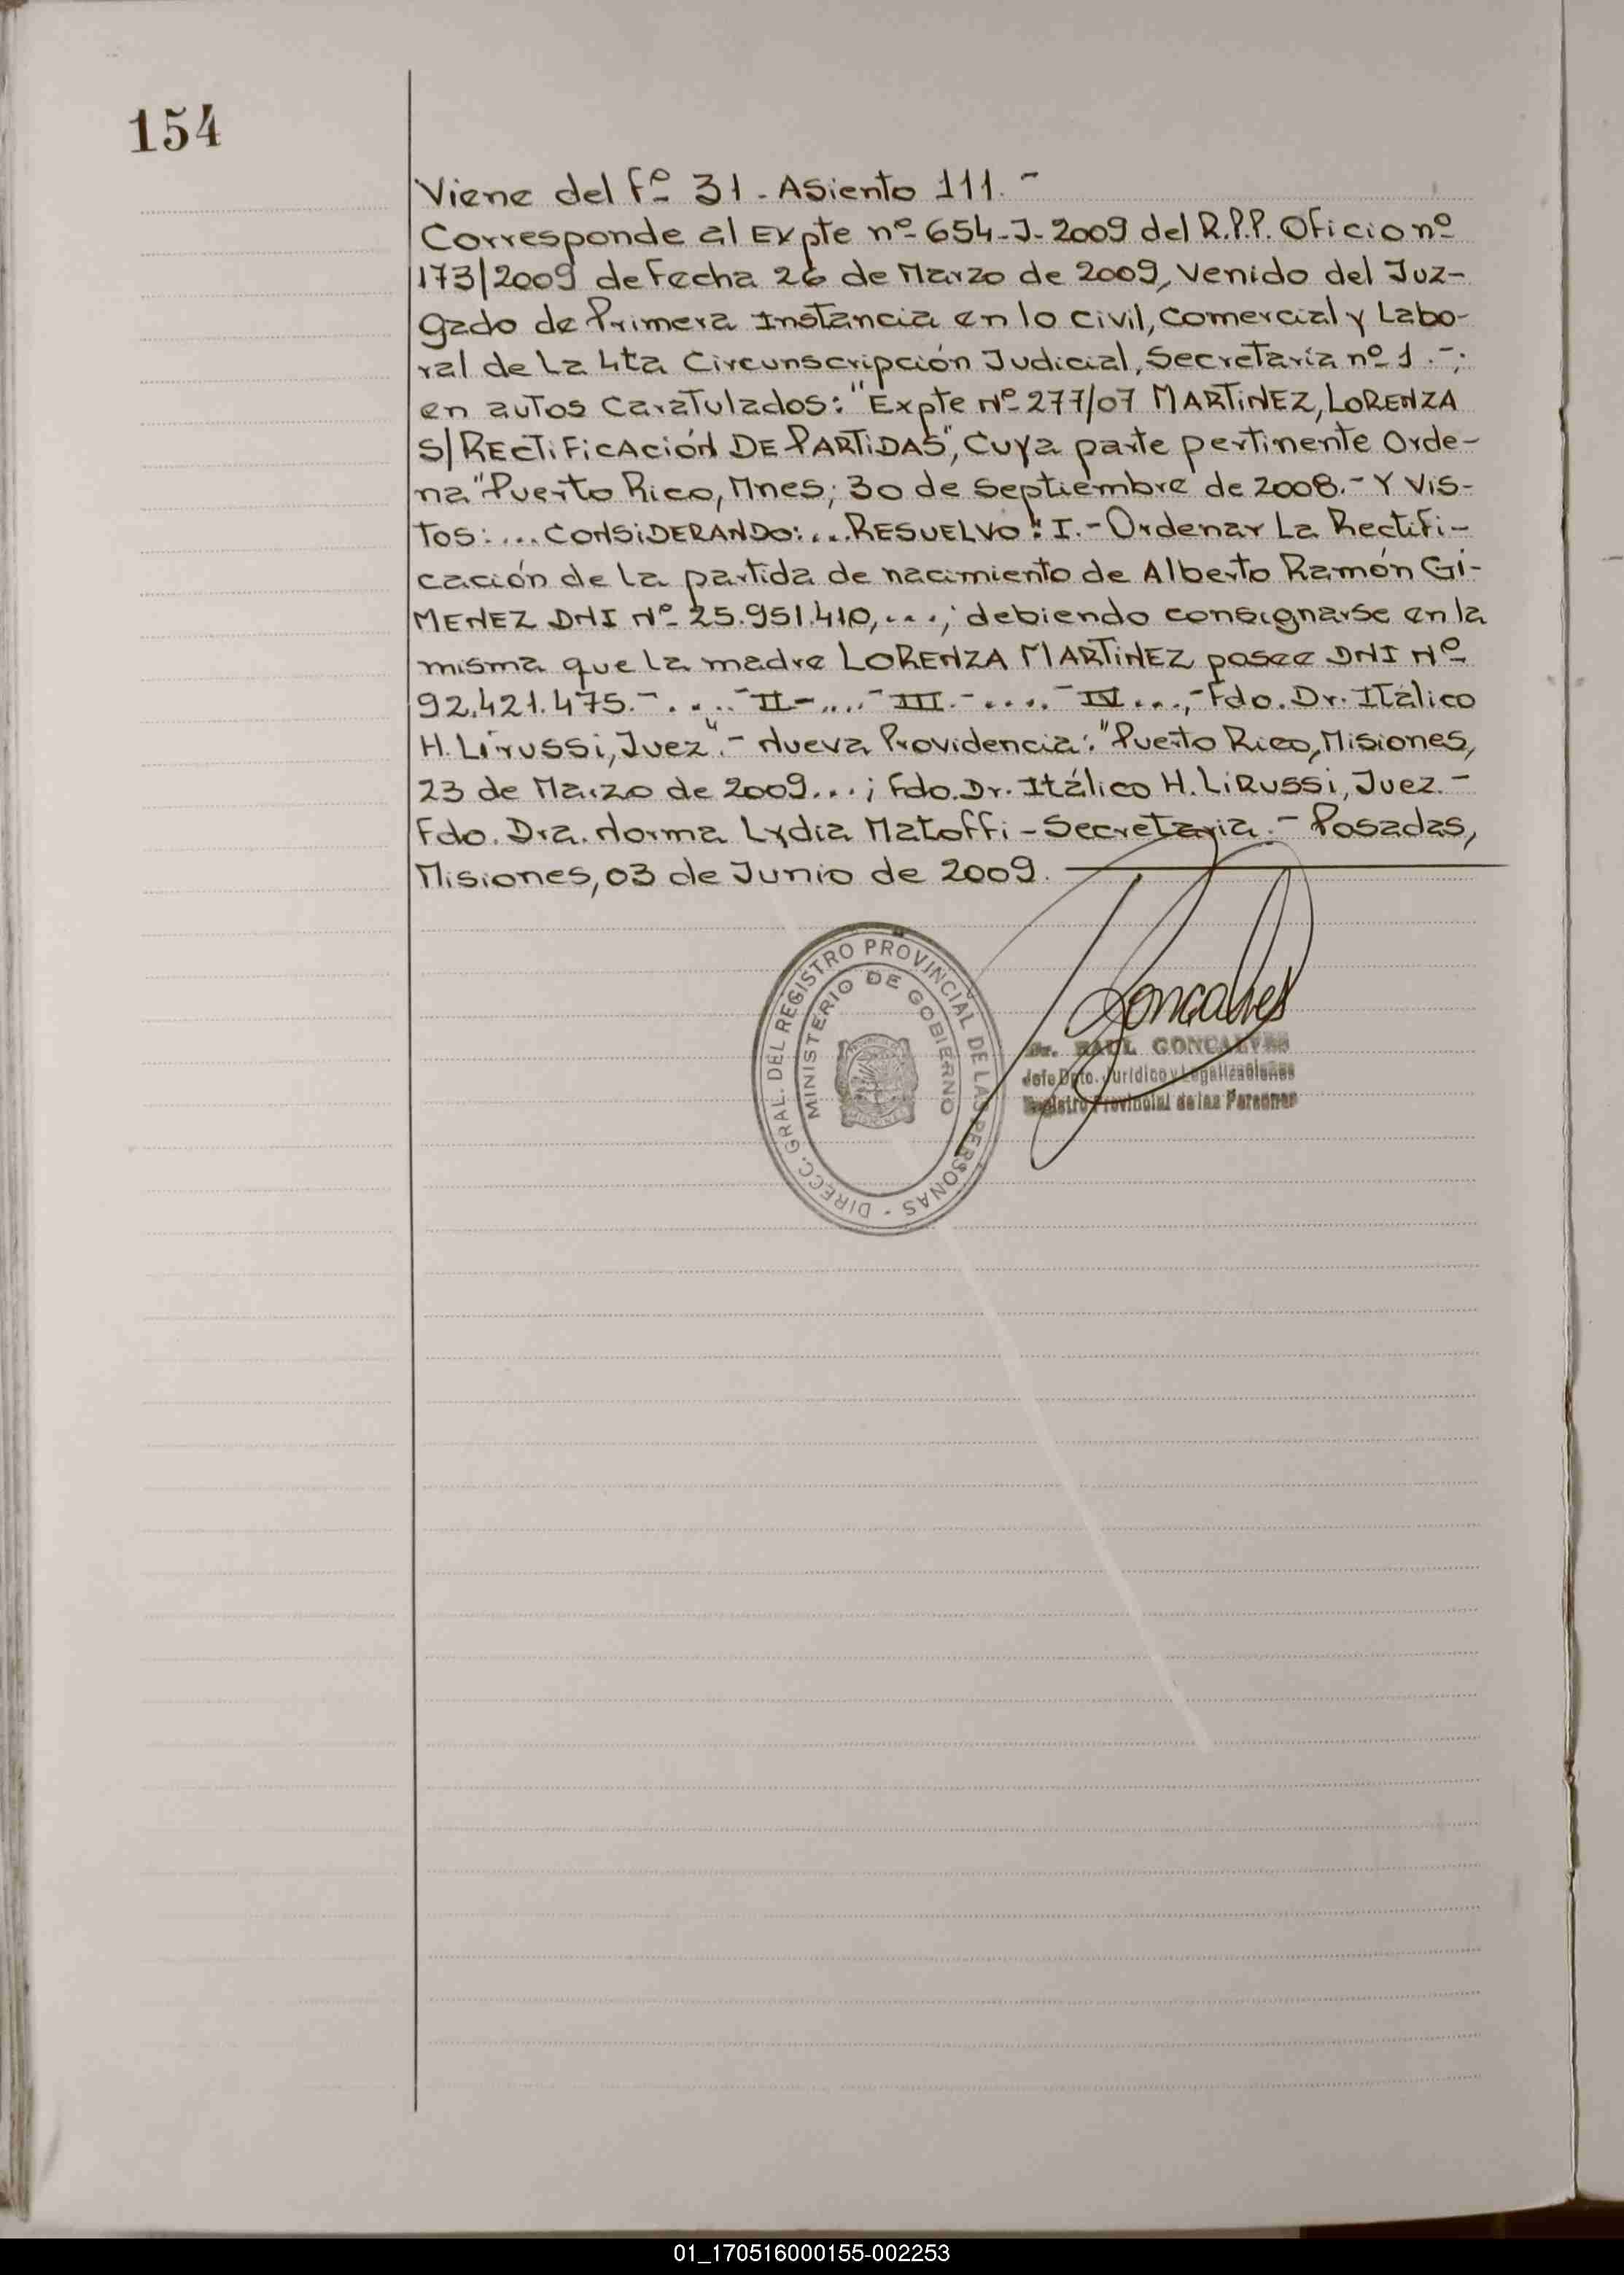 154
Viene del Fº 31 - Asiento 111.-
Corresponde al Expte nº 654-J-2009 del R.P.P. Oficio nº
173/2009 de Fecha 26 de Marzo de 2009, venido del Juz-
gado de Primera Instancia en lo civil, Comercial y Labo-
ral de La 4ta Circunscripción Judicial, Secretaría nº 1.-;
en autos Caratulados: "Expte Nº 277/07 MARTINEZ, LORENZA
S/RECTIFICACIÓN DE PARTIDAS", Cuya parte pertinente Orde-
na "Puerto Rico, Mnes; 30 de Septiembre de 2008.- Y Vis-
tos:... CONSIDERANDO:... RESUELVO: I.- Ordenar La Rectifi-
cación de la partida de nacimiento de Alberto Ramón Gi-
MENEZ DNI Nº 25.951.410,...; debiendo consignarse en la
misma que La madre LORENZA MARTINEZ posee DNI Nº
92.421.475.- .... - II- .... - III.- .... - IV...,- Fdo. Dr. Itálico
H. Lirussi, Juez".- Nueva Providencia: "Puerto Rico, Misiones,
23 de Marzo de 2009...; Fdo. Dr. Itálico H. LiRussi, Juez.-
Fdo. Dra. Norma Lydia Matoffi - Secretaria.- Posadas,
Misiones, 03 de Junio de 2009.
DIRECC. GRAL. DEL REGISTRO PROVINCIAL DE LAS PERSONAS -
MINISTERIO DE GOBIERNO
Goncalves
Dr. RAUL GONCALVES
Jefe Dpto. Jurídico y Legalizaciones
Registro Provincial de las Personas
01_170516000155-002253